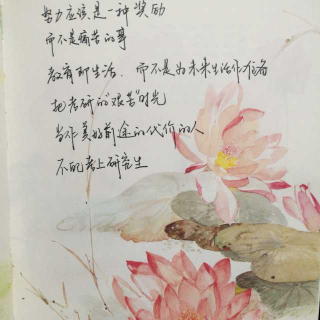 努力应该是一种奖励
而不是痛苦的事
教育即生活，而不是为未来生活作准备
把考研的“艰苦”时光
当作美好前途的代价的人
不配考上研究生